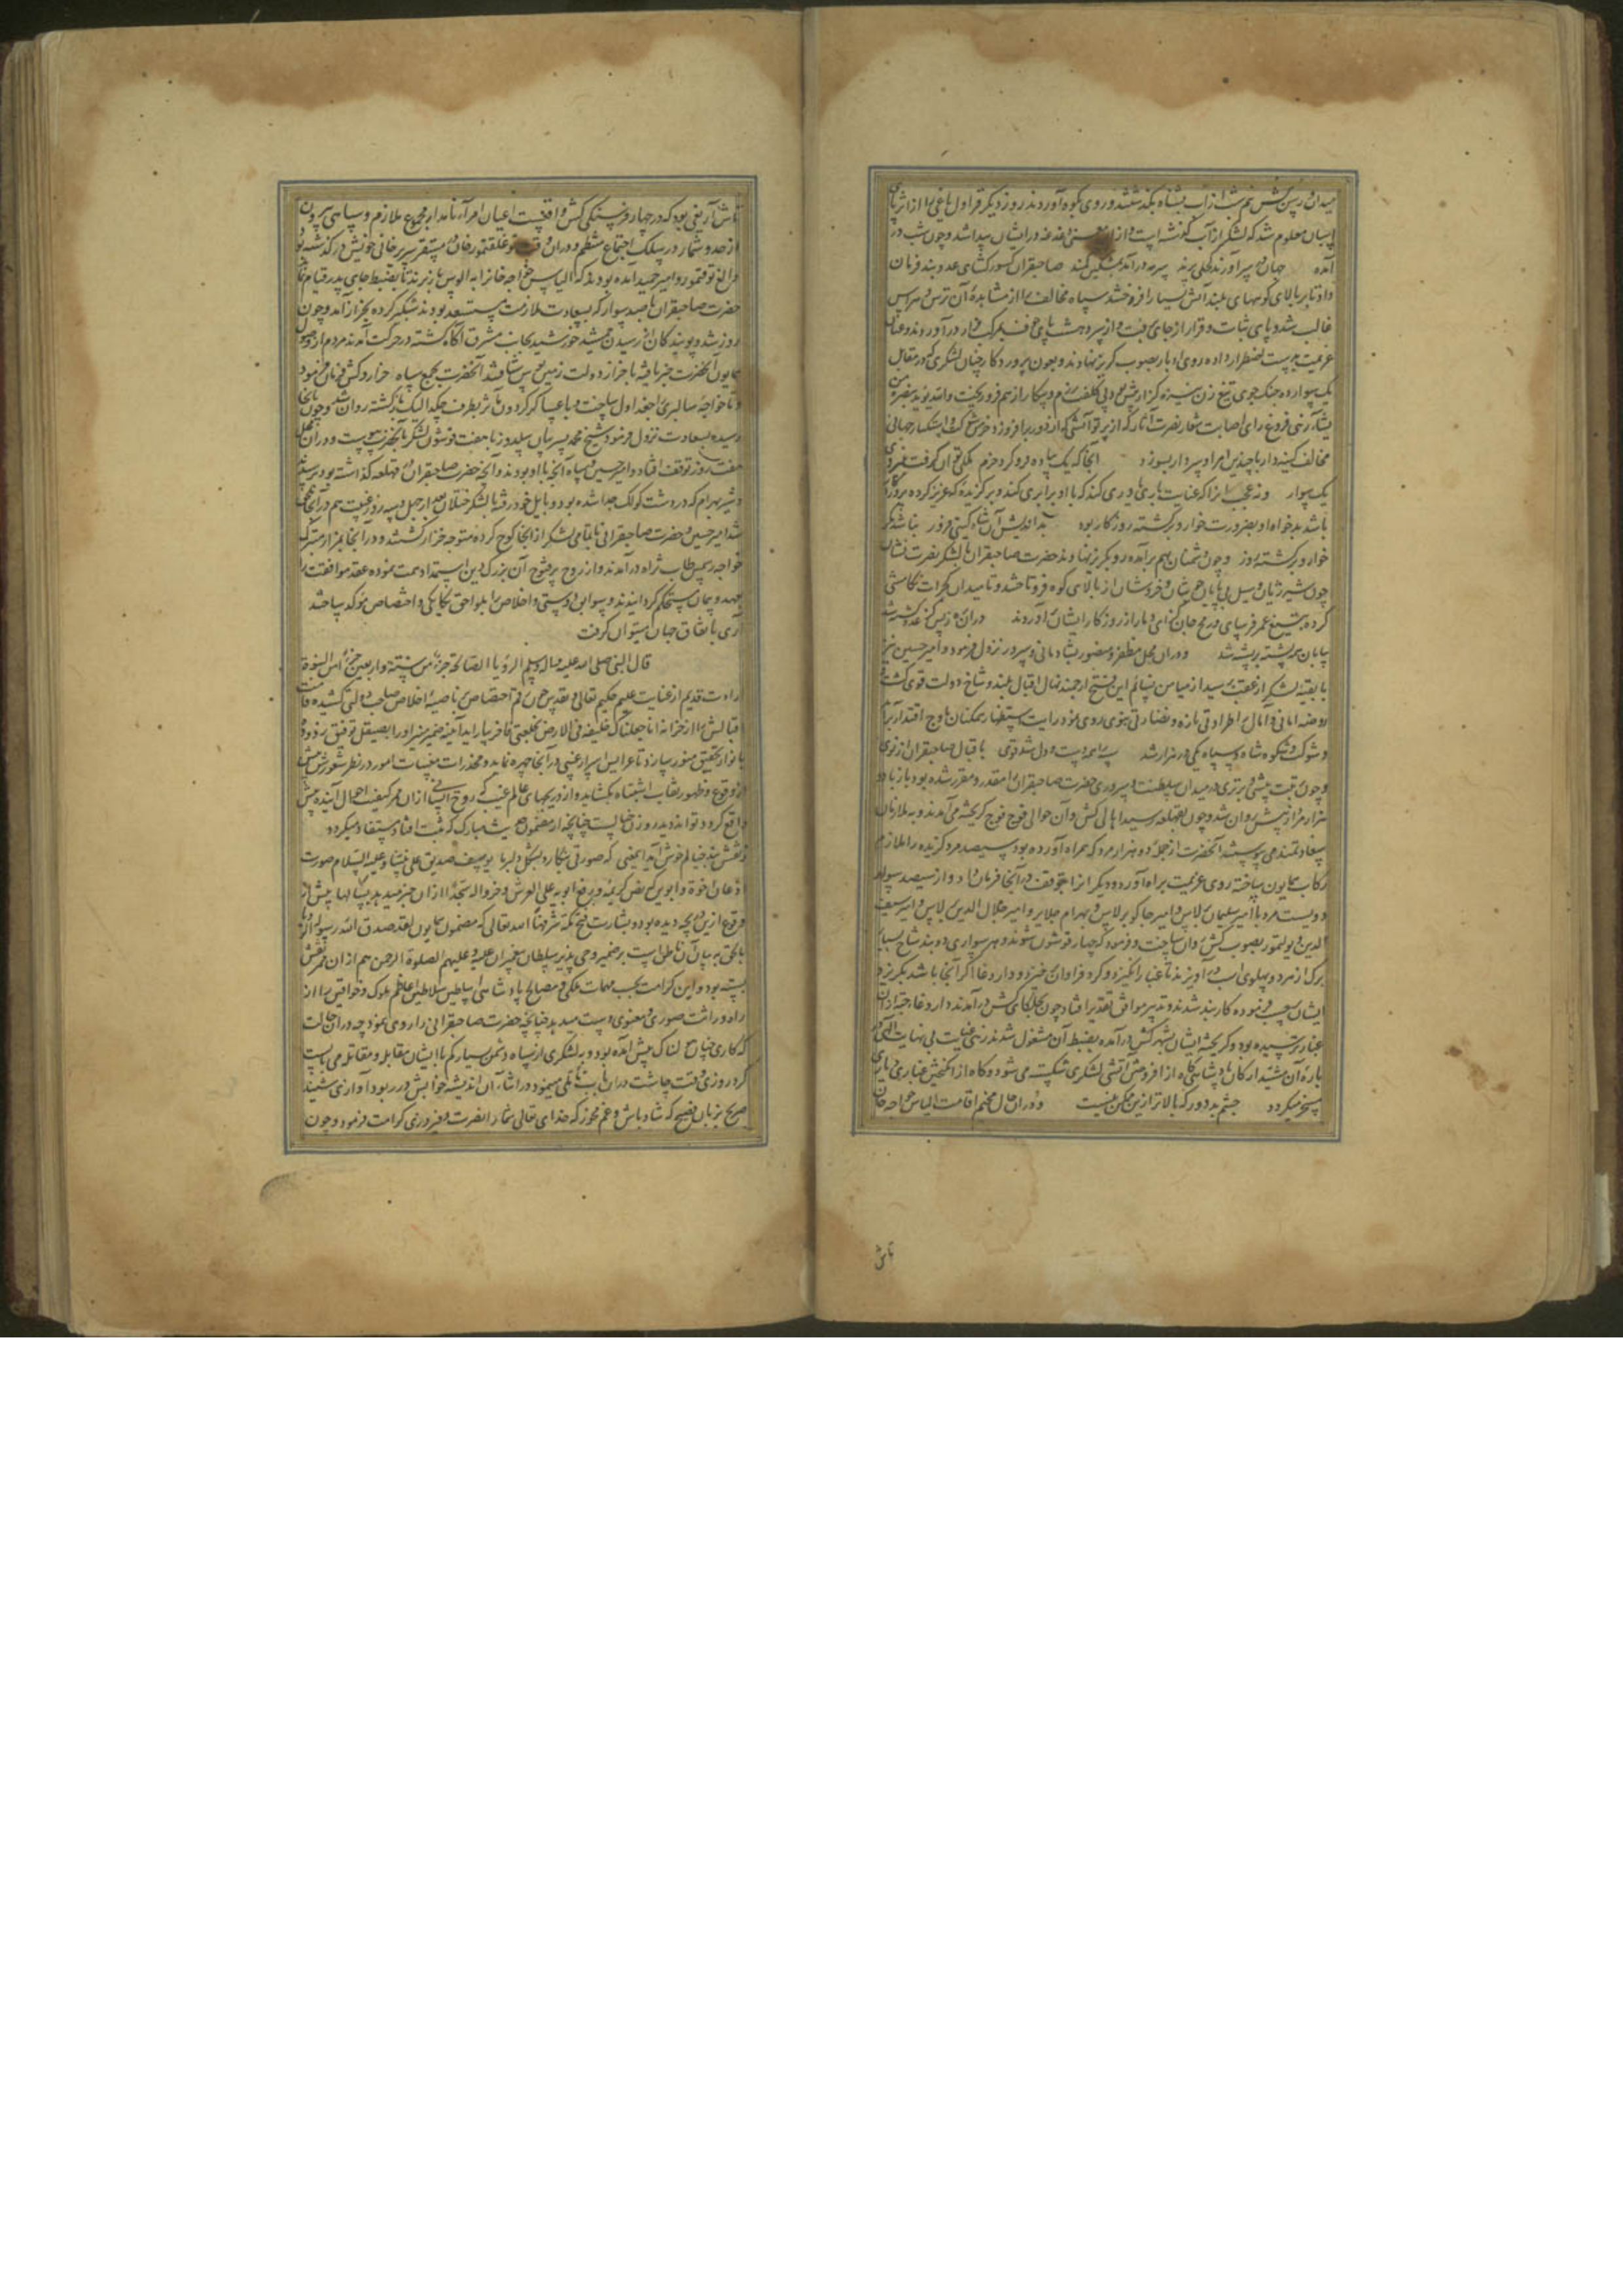 میدان رسن شش نیم شب از آب بشناه بگذشتند و روی بکوه آوردند روز دیگر قراول یاغی را از اثر پای
اسبان معلوم شد که لشکر از آب گذشته است و از آن دغدغه در ایشان پیدا شد و چون شب در
آمد جهان سر آورند کحلی پرند صاحبقران کشورگشای عدوبند فرمان
داد تا بر بالای کوههای بلند آتش بسیار افروختند سپاه مخالف را از مشاهدهٔ آن ترس و هراس
غالب شد و پای ثبات و قرار از جای برفت و از سر دهشت در آوردند و عنان
عزیمت بدست اضطرار داده روی ادبار بصوب گریز نهادند و بعون پروردگار چنان لشکری که در مقابل
یک سوار ده جنگجوی تیغ زن نیزه گزار بیش بود بی کلفت رزم و پیکار از هم فرو ریخت والله یؤید بنصره من
یشاء زهی فروغ رای اصابت شعار نصرت آثار که از پرتو آتشی که از دور برافروزد خرمن شوکت و استکبار جهانی
مخالف کینه‌دار با چندین امرا و سردار بسوزد آنجا که یک پیاده فرو کرد حزم ملکی توان گرفت به نیروی
یک سوار و نه عجب آنرا که عنایت باری یاوری کند که با او برابری کند و برگزیده که عزیز کردهٔ پروردگار
باشد بدخواه او بضرورت خوار و برگشته روزگار بود بداندیش آن شاه گیتی فروز نباشد مگر
خوار و برگشته روز و چون دشمنان بهم برآمده رو بگریز نهادند حضرت صاحبقران با لشکر نصرت نشان
چون شیر ژیان و سیل بی پایان خروشان از بالای کوه فرو تاختند و تا میدان گجرات تکامشی
کرده بتیغ عمر فرسای و رمح جان گزای دمار از روزگار ایشان برآوردند در آن رزم کز کشته شد
بیابان همه پشته بر پشته شد و در آن محل مظفر و منصور بشادمانی و سرور نزول فرمود و امیر حسین نیز
با بقیه لشکر از عقب رسید از میامن نسایم این فتح ارجمند نهال اقبال بلند و شاخ دولت قوی گشت و
روضه امانی و آمال را طراوتی تازه و نضارتی بی روی نمود رایت استظهار همگنان باوج اقتدار برآمد
و شوکت و شکوه شاه و سپاه یکی در هزار شد سپه را همه دست و دل شد قوی باقبال صاحبقران از نوی
و چون رتبت پیشی و برتری در میدان سلطنت و سروری حضرت صاحبقران را مقدر و مقرر شده بود باز با دو
هزار مرد از پیش روان شد و چون بقهلغه رسید اهالی کش و آن حوالی فوج فوج گریخته می‌آمدند و بملازمت
سعادتمند می‌پیوستند آنحضرت از جملهٔ دو هزار مرد که همراه آورده بود سیصد مرد گزیده را ملازم
رکاب همایون ساخته روی عزیمت براه آورد و دیگرانرا بتوقف در آنجا فرمان داد و از سیصد سوار
دویست مرد با امیر سلیمان برلاس و امیر جاکو برلاس و بهرام جلایر و امیر جلال الدین برلاس و امیر سیف
الدین و یولتمور بصوب کش روان ساخت و فرمود که چهار قوشون شوند و هر سواری دو بند شاخ بسیار
برگ از هر دو پهلوی اسب درآویزند تا غبار انگیزد و گرد فراوان خیزد و داروغا اگر آنجا باشد بگریزد
ایشان بموجب فرموده کاربند شدند و تدبیر موافق تقدیر افتاد چون بجلگای کش درآمدند داروغا جته از آن
غبار ترسیده بود و گریخته ایشان بشهر کش درآمده بضبط آن مشغول شدند زهی عنایت بی نهایت الهی در
بارهٔ آن مشید ارکان پادشاهی گاه از افروختن آتشی لشکری شکسته می‌شود و گاه از انگیختن غباری دیاری
مسخر میگردد چشم بد دور که بالاتر ازین ممکن نیست و در آن حال مخیم اقامت الیاس خواجه خان
تاش آریغی بود که در چهار فرسنگی کش واقعست اعیان امرا و نامدار مجموع ملازم و سپاهی بیرون
از حد و شمار در سلک اجتماع منتظم و در آن وقت توغلقتمور خان در مستقر سریر خانی خویش درگذشته بود
و الغ توقتمور و امیر حمید آمده بودند که الیاس خواجه خانرا به الوس باز برند تا بضبط جای پدر قیام نماید
حضرت صاحبقران با صد سوار که بسعادت ملازمت مستسعد بودند شبگیر کرده بخزار آمد و چون
روز شد و پویندگان از رسیدن جمشید خورشید بجانب مشرق آگاه گشته در حرکت آمدند مردم از وصول
همایون آنحضرت خبر یافته با حراز دولت زمین بوس شتافتند آنحضرت بجمع سپاه خزار و کش فرمان فرمود
و با خواجه سالبری احفد اول ساخت و با عساکر گردون مآثر بطرف چکدالیک بازگشته روان شد و چون بآنجا
رسیده بسعادت نزول فرمود شیخ محمد پسر بیان سلدوز با هفت قوشون لشکر بآنحضرت پیوست و در آن محل
هفت روز توقف افتاد و امیر حسین و سپاه آنچه با او بودند و آنچه حضرت صاحبقران در قهلغه گذاشته بود برسید
و شیر بهرام که در دشت کولک جدا شده بود و با ایل خود رفته با لشکر ختلان بعد از چهل و سه روز غیبت هم در آنجا ملحق
شد امیر حسین و حضرت صاحبقرانی با تمامی لشکر از آنجا کوچ کرده متوجه خزار گشتند و در آنجا بمزار متبرک
خواجه شمس طاب ثراه درآمدند و از روح پرفتوح آن بزرگ دین استمداد همت نموده عقد موافقت را
بعهد و پیمان مستحکم گردانیدند و سوابق دوستی و اخلاص را بلواحق یگانگی و اختصاص مؤکد ساختند
آری باتفاق جهان میتوان گرفت
قال النبی صلی الله علیه و آله وسلم الرؤیا الصالحة جزء من ستة و اربعین جزءا من النبوة
ارادت قدیم از عنایت علیم حکیم تعالی و تقدس چون رقم اختصاص بر ناصیهٔ اخلاص صاحب دولتی کشیده قامت
اقبالش را از خزانه انا جعلناک خلیفة فی الارض بخلعتی فاخر بیاراید آیینه ضمیر منیر او را بصیقل توفیق بزدوده
بانوار تحقیق منور سازد تا عرایس اسرار غیبی در آنجا چهره نماید و مخدرات مغیبات امور در نظر شعورش پیش
از وقوع و ظهور نقاب اشتباه بگشاید و از دریچهای عالم غیب که روح انسانی را از آن ممر کیفیت احوال آینده پیش
واقع گردد تواند دید روزن خیالست چنانچه از مضمون حدیث مبارک که ثبت افتاد مستفاد میگردد
نقش بند خیالم خوش آید ایمعنی که صورتی بنگارد بشکل دلربا یوسف صدیق علی نبینا و علیه السلام صورت
اذعان اخوة و ابوین که نص کریمه و رفع ابویه علی العرش و خروا له سجدا از آن خبر میدهد بسالها پیش از
وقوع ازین دریچه دیده بود و بشارت فتح مکه شرفها الله تعالی که مضمون همایون لقد صدق الله رسوله الرؤیا
بالحق به بیان آن ناطق است بر ضمیر وحی پذیر سلطان پیغمبران علیه و علیهم الصلوة الرحمن هم از آن ممر نقش
بسته بود و این کرامت بحسب مهمات ملکی و مصالح پادشاهی اساطین سلاطین اعاظم ملوک و خواقین را از
راه وراثت صوری و معنوی دست میدهد چنانچه حضرت صاحبقرانی را روی نمود چه در آن حالت
که کاری چنان هولناک پیش آمده بود و با لشکری از سپاه دشمن بسیار کم با ایشان مقابله و مقاتله می‌بایست
کرد روزی وقت چاشت در آن باب تأملی مینمود در اثنای آن اندیشه خوابش در ربود آوازی شنید
صریح بزبان فصیح که شاد باش و غم مخور که خدای تعالی شما را نصرت و فیروزی کرامت فرمود و چون
تاش